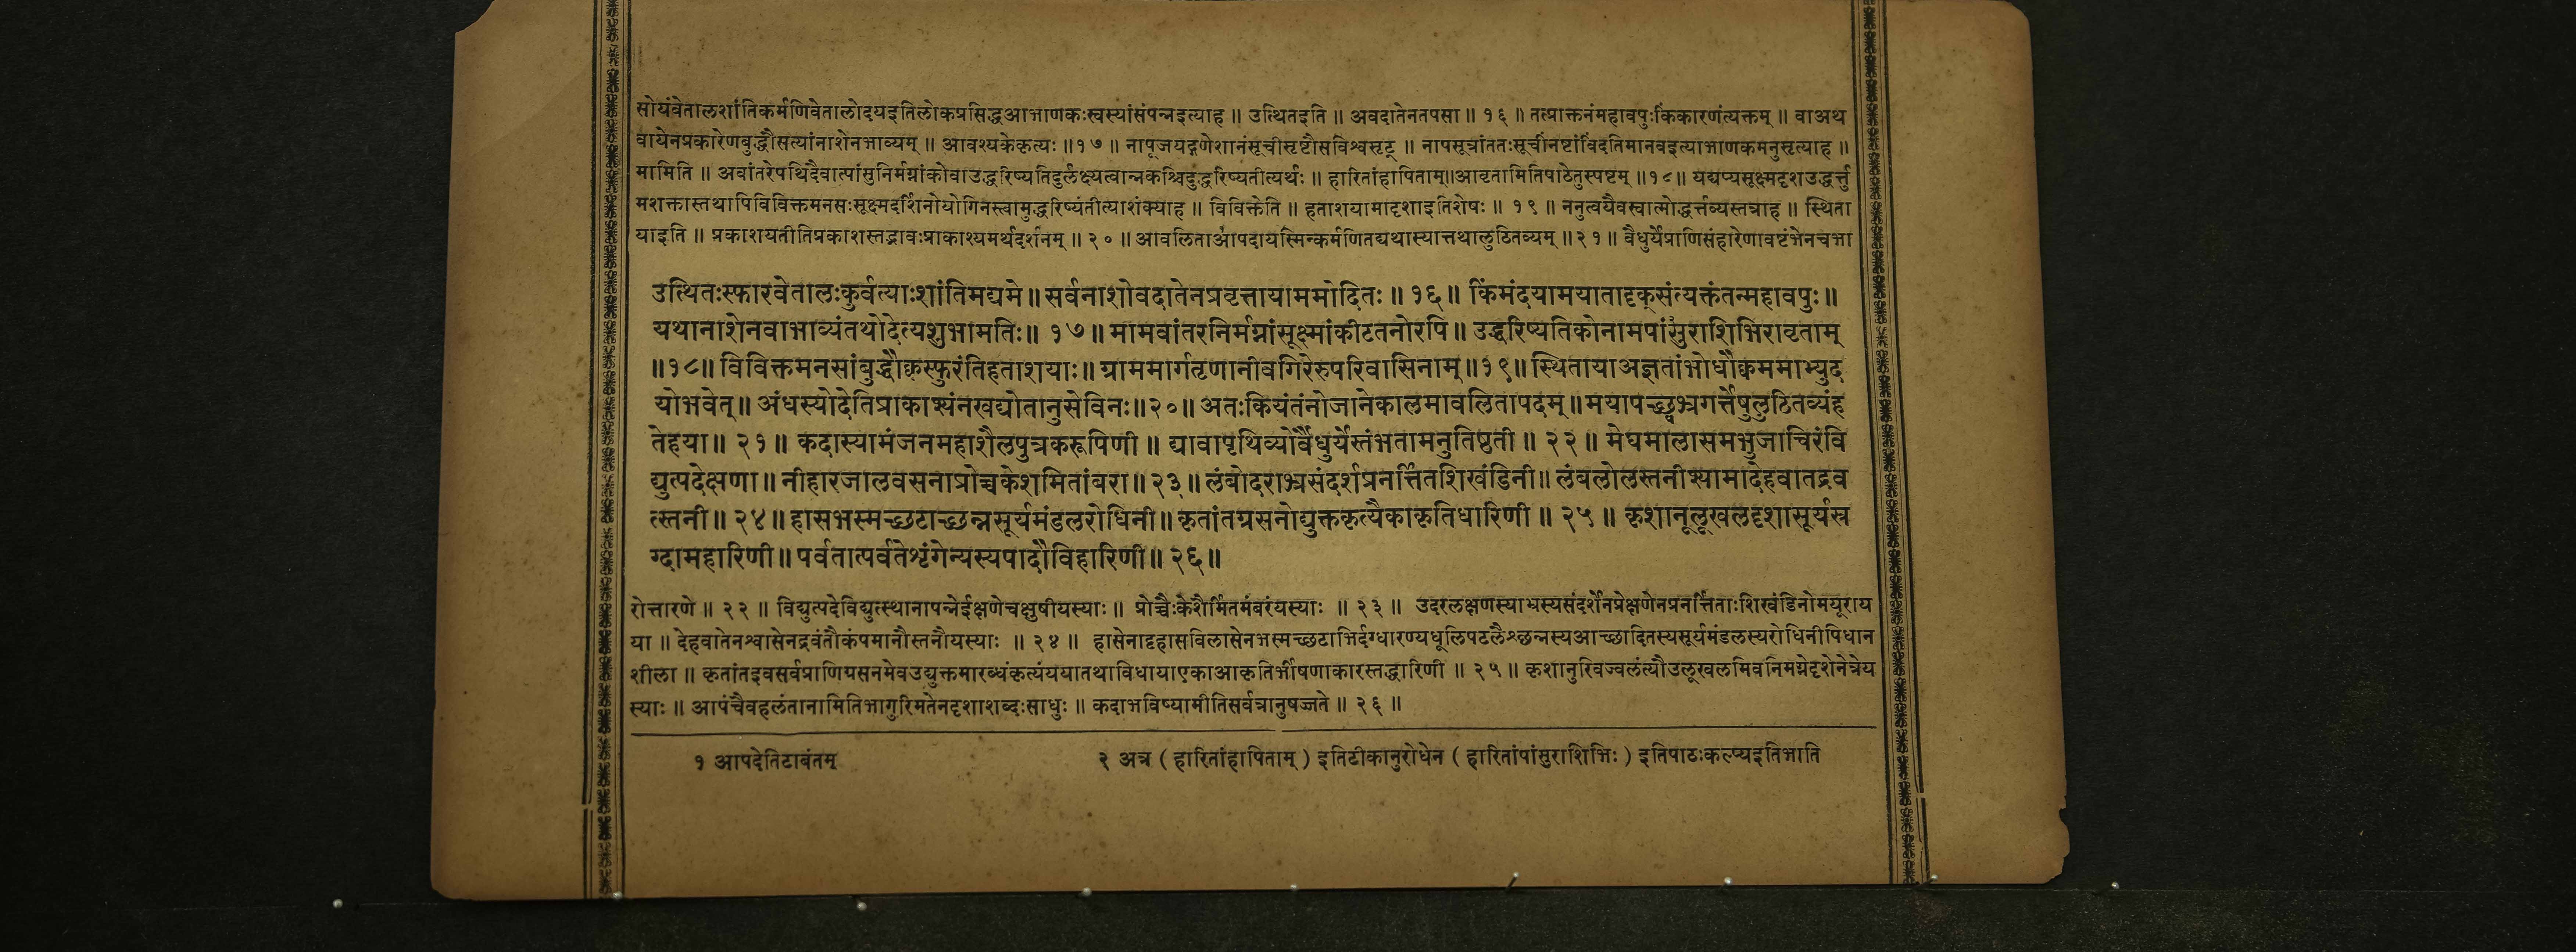 सोयंवेतालशांतिकर्मणिवेतालोदयइतिलोकप्रसिद्धआभाणकःस्वस्यांसंपन्नइत्याह ॥ उत्थितइति ॥ अवदातेनतपसा ॥ १६ ॥ तत्प्राक्तनंमहावपुःकिंकारणंत्यक्तम् ॥ वाअथ
वायेनप्रकारेणबुद्धौसत्यांनाशेनभाव्यम् ॥ आवश्यकेकृत्यः ॥१७॥ नापूजयद्गणेशानंसूचीसृष्टौसविश्वसृट् ॥ नापसूत्रांततःसूचींनष्टांविंदतिमानवइत्याभाणकमनुसृत्याह ॥
मामिति ॥ अवांतरेपथिदैवात्पांसुनिर्मग्नांकोवाउद्धरिष्यतिदुर्लक्ष्यत्वान्नकश्चिदुद्धरिष्यतीत्यर्थः ॥ हारितांहापिताम्॥आवृतामितिपाठेतुस्पष्टम् ॥१८॥ यद्यप्यसूक्ष्मदृशउद्धर्त्तु
मशक्तास्तथापिविविक्तमनसःसूक्ष्मदर्शिनोयोगिनस्त्वामुद्धरिष्यंतीत्याशंक्याह ॥ विविक्तेति ॥ हताशयामादृशाइतिशेषः ॥ १९ ॥ ननुत्वयैवस्वात्मोद्धर्त्तव्यस्तत्राह ॥ स्थिता
याइति ॥ प्रकाशयतीतिप्रकाशस्तद्भावःप्राकाश्यमर्थदर्शनम् ॥ २० ॥ आवलिताआपदायस्मिन्कर्मणितद्यथास्यात्तथालुठितव्यम् ॥२१॥ वैधुर्येप्राणिसंहारेणावष्टंभेनचभा
उत्थितःस्फारवेतालःकुर्वत्याःशांतिमद्यमे॥सर्वनाशोवदातेनप्रवृत्तायाममोदितः॥ १६॥ किंमंदयामयातादृक्संत्यक्तंतन्महावपुः॥
यथानाशेनवाभाव्यंतथोदेत्यशुभामतिः॥ १७॥ मामवांतरनिर्मग्नांसूक्ष्मांकीटतनोरपि॥ उद्धरिष्यतिकोनामपांसुराशिभिरावृताम्
॥१८॥ विविक्तमनसांबुद्धौक्वस्फुरंतिहताशयाः॥ ग्राममार्गतृणानीवगिरेरुपरिवासिनाम्॥१९॥ स्थितायाअज्ञतांभोधौक्वममाभ्युद
योभवेत्॥ अंधस्योदेतिप्राकाश्यंनखद्योतानुसेविनः॥२०॥ अतःकियंतंनोजानेकालमावलितापदम्॥मयापच्छ्वभ्रगर्त्तेषुलुठितव्यंह
तेहया॥ २१॥ कदास्यामंजनमहाशैलपुत्रकरूपिणी ॥ द्यावापृथिव्योर्वैधुर्येस्तंभतामनुतिष्ठती ॥ २२ ॥ मेघमालासमभुजाचिरंवि
द्युत्पदेक्षणा॥ नीहारजालवसनाप्रोच्चकेशमितांबरा॥ २३॥ लंबोदराभ्रसंदर्शप्रनर्त्तितशिखंडिनी॥ लंबलोलस्तनीश्यामादेहवातद्रव
त्स्तनी॥ २४॥ हासभस्मच्छटाच्छन्नसूर्यमंडलरोधिनी॥ कृतांतग्रसनोद्युक्तकृत्यैकाकृतिधारिणी ॥ २५ ॥ कृशानूलूखलदृशासूर्यस्र
ग्दामहारिणी॥ पर्वतात्पर्वतेशृंगेन्यस्यपादौविहारिणी॥ २६॥
रोत्तारणे ॥ २२ ॥ विद्युत्पदेविद्युत्स्थानापन्नेईक्षणेचक्षुषीयस्याः ॥ प्रोच्चैःकेशैर्मितमंबरंयस्याः ॥ २३ ॥ उदरलक्षणस्याभ्रस्यसंदर्शेनप्रेक्षणेनप्रनर्त्तिताःशिखंडिनोमयूराय
या ॥ देहवातेनश्वासेनद्रवंतौकंपमानौस्तनौयस्याः ॥ २४ ॥ हासेनाट्टहासविलासेनभस्मच्छटाभिर्दग्धारण्यधूलिपटलैश्छन्नस्यआच्छादितस्यसूर्यमंडलस्यरोधिनीपिधान
शीला ॥ कृतांतइवसर्वप्राणिग्रसनमेवउद्युक्तमारब्धंकृत्यंययातथाविधायाएकाआकृतिर्भीषणाकारस्तद्धारिणी ॥ २५ ॥ कृशानुरिवज्वलंत्यौउलूखलमिवनिमग्नेदृशेनेत्रेय
स्याः ॥ आपंचैवहलंतानामितिभागुरिमतेनदृशाशब्दःसाधुः ॥ कदाभविष्यामीतिसर्वत्रानुषज्जते ॥ २६ ॥
१ आपदेतिटाबंतम् २ अत्र ( हारितांहापिताम् ) इतिटीकानुरोधेन ( हारितांपांसुराशिभिः ) इतिपाठःकल्प्यइतिभाति